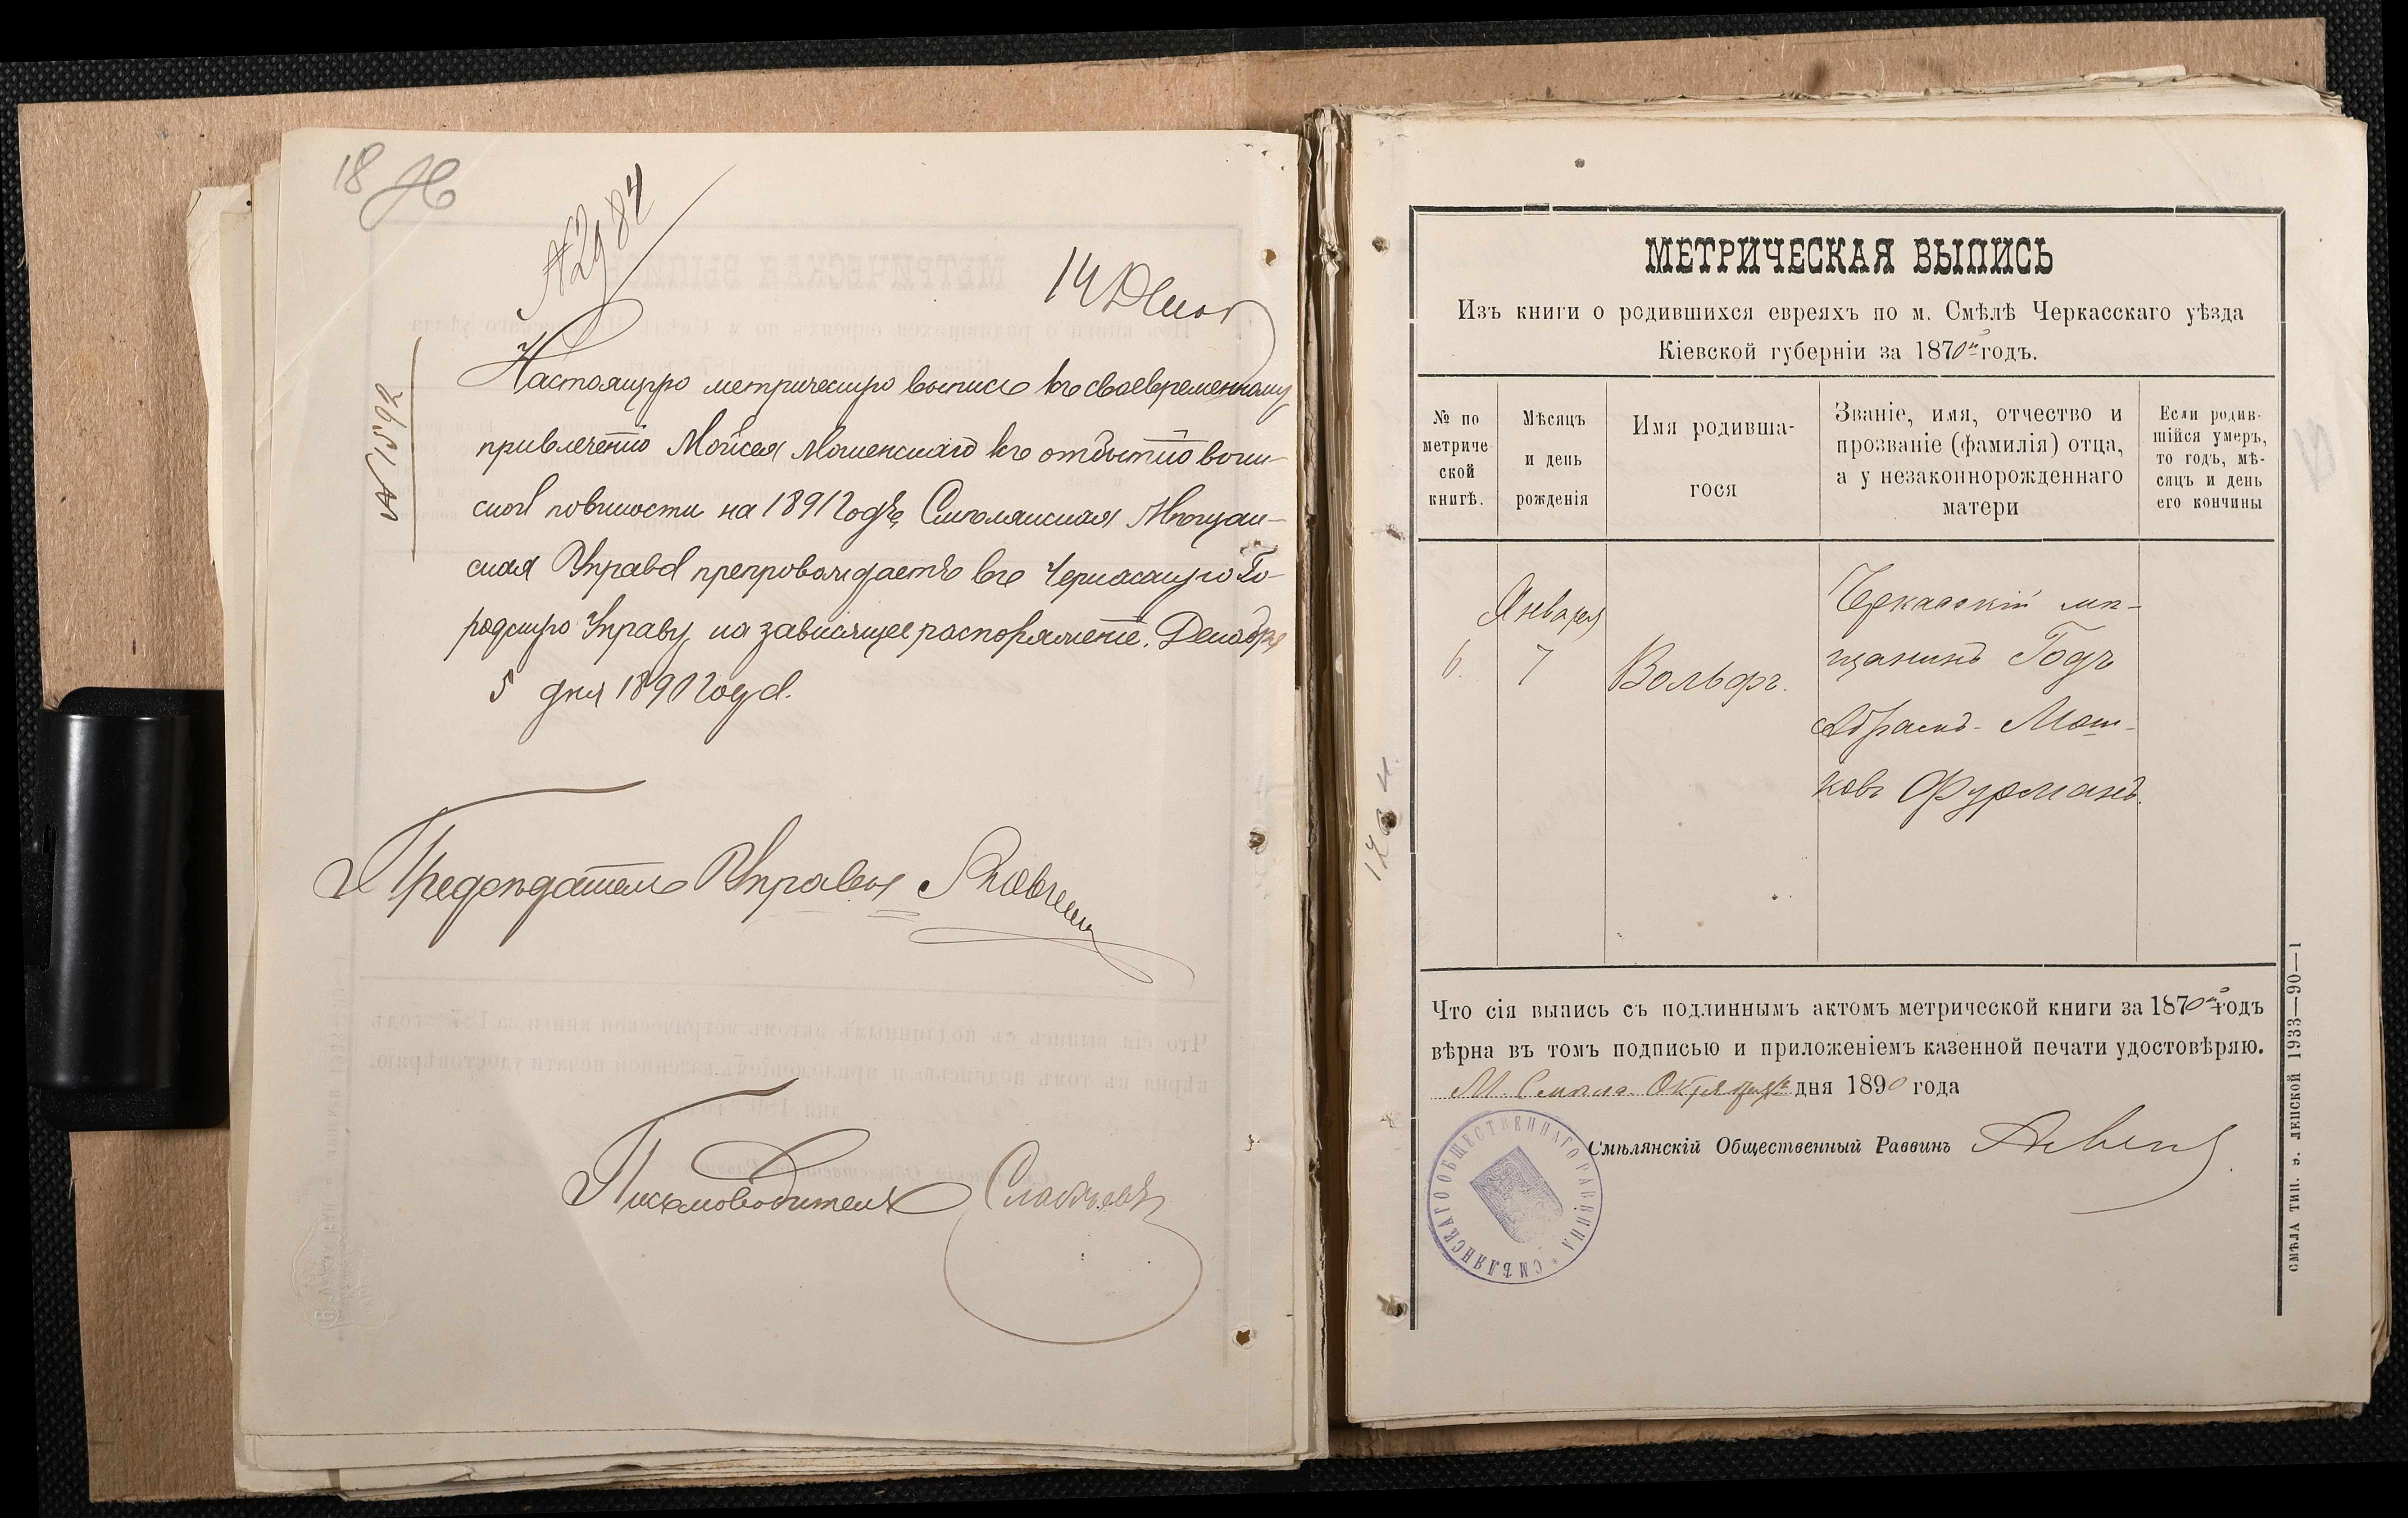 18
№ 2984
14 Дек
№ 1592
Настоящую метрическую выпись къ своевременному
привлеченію Мойсея Мошенскаго къ отбытію воин-
ской повинности на 1891 годъ, Смѣлянская Мѣщан-
ская Управа препровождаетъ въ Черкасскую Го-
родскую Управу, на зависящее распоряженіе. Декабря
5 дня 1890 года.
Предсѣдатель Управы
Письмоводитель
МЕТРИЧЕСКАЯ ВЫПИСЬ
Изъ книги о родившихся евреяхъ по м. Смѣлѣ Черкасскаго уѣзда
Кіевской губерніи за 1870й годъ.
№ по метриче ской книгѣ.
Мѣсяцъ и день рожденія
Имя родивша- гося
Званіе, имя, отчество и прозваніе (фамилія) отца, а у незаконнорожденнаго матери
Если родив- шійся умеръ, то годъ, мѣ- сяцъ и день его кончины
6.
Января
7
Вольфъ.
Черкасскій мѣ-
щанинъ Годъ
Абрамъ- Мош-
ковъ Фурманъ.
Что сія выпись съ подлиннымъ актомъ метрической книги за 1870й годъ
вѣрна въ томъ подписью и приложеніемъ казенной печати удостовѣряю.
М. Смѣла. Октября дня 1890 года
Смѣлянскій Общественный Раввинъ
СМѢЛЯНСКАГО ОБЩЕСТВЕННАГО РАВВИНА
СМѢЛА ТИП. Э. ЛЕПСКОЙ 1933—90—1